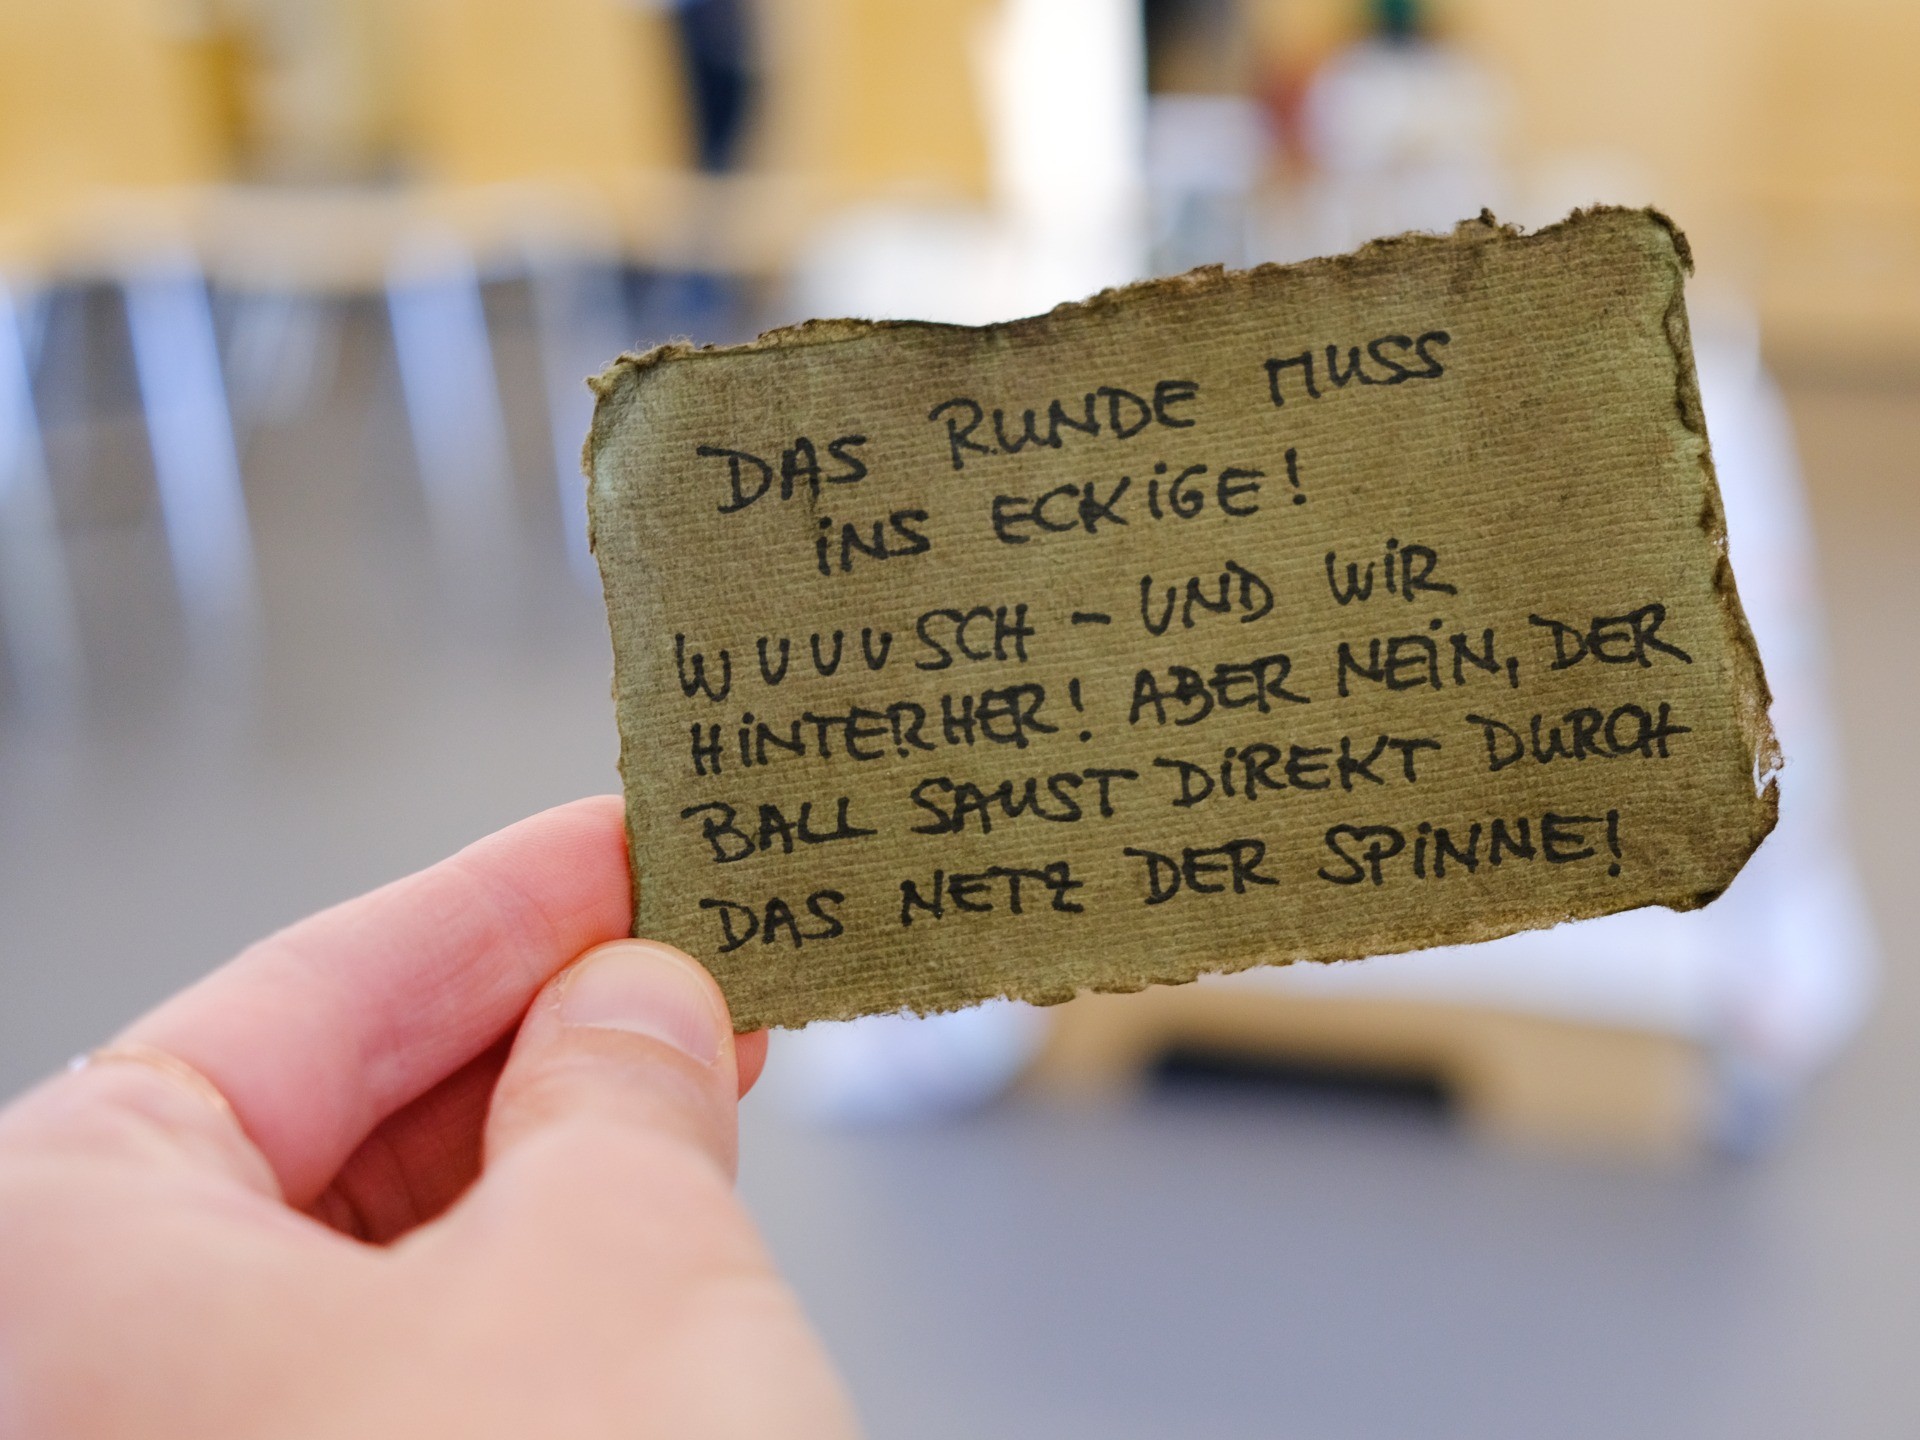 DAS RUNDE MUSS
INS ECKIGE!
WUUUSCH - UND WIR
HINTERHER! ABER NEIN, DER
BALL SAUST DIREKT DURCH
DAS NETZ DER SPINNE!